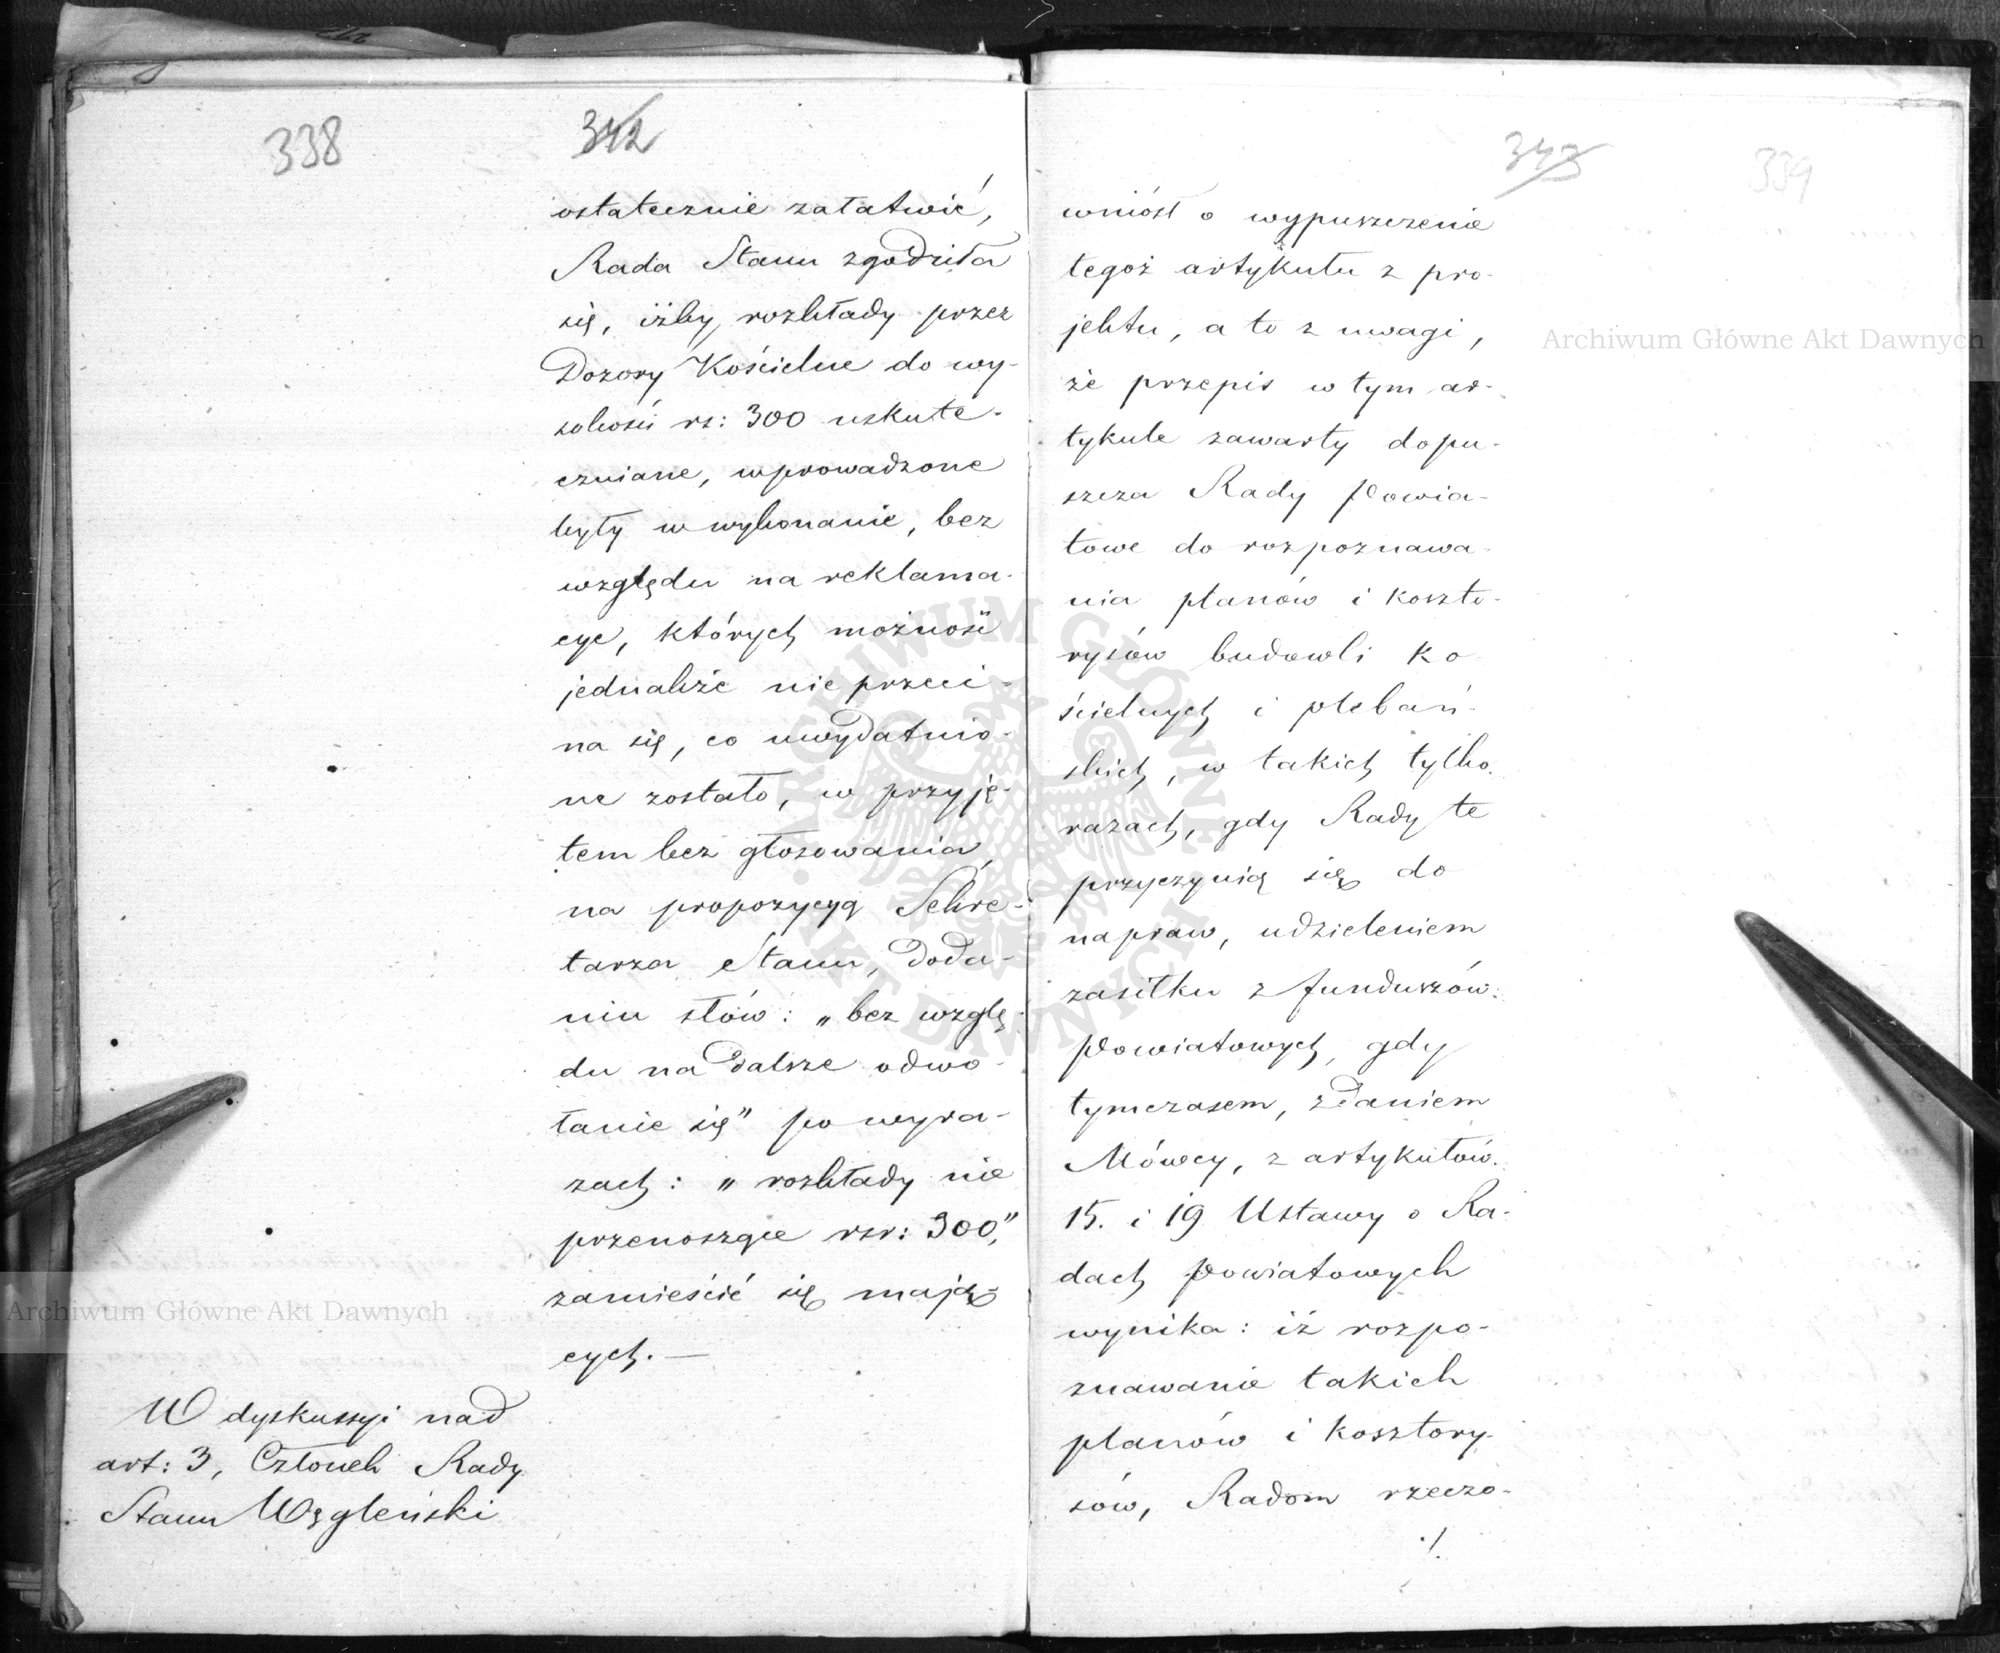 338
342
ostatecznie załatwić,
Rada Stanu zgodziła
się, iżby rozkłady przez
Dozory Kościelne do wy-
sokości rs: 300 uskute-
czniane, wprowadzone
były w wykonanie, bez
względu na reklama-
cye, których możność
jednakże nie przeci-
na się, co uwydatnio-
ne zostało, w przyję-
tem bez głosowania,
na propozycyą Sekre-
tarza Stanu, doda-
niu słów: „bez wzglę-
du na dalsze odwo-
łanie się" po wyra-
zach: „rozkłady nie
przenoszące rsr: 300,"
zamieścić się mają-
cych. —
W dyskussyi nad
art: 3, Członek Rady
Stanu Węgleński
343
339
wniósł o wypuszczenie
tegoż artykułu z pro-
jektu, a to z uwagi,
że przepis w tym ar-
tykule zawarty dopu-
szcza Rady Powia-
towe do rozpoznawa-
nia planów i koszto-
rysów budowli ko-
ścielnych i plebań-
skich, w takich tylko
razach, gdy Rady te
przyczynią się do
napraw, udzieleniem
zasiłku z funduszów
Powiatowych, gdy
tymczasem, zdaniem
Mówcy, z artykułów
15. i 19 Ustawy o Ra-
dach Powiatowych
wynika: iż rozpo-
znawanie takich
planów i kosztory-
sów, Radom rzeczo-
./.
Archiwum Główne Akt Dawnych
Archiwum Główne Akt Dawnych
ARCHIWUM GŁÓWNE AKT DAWNYCH